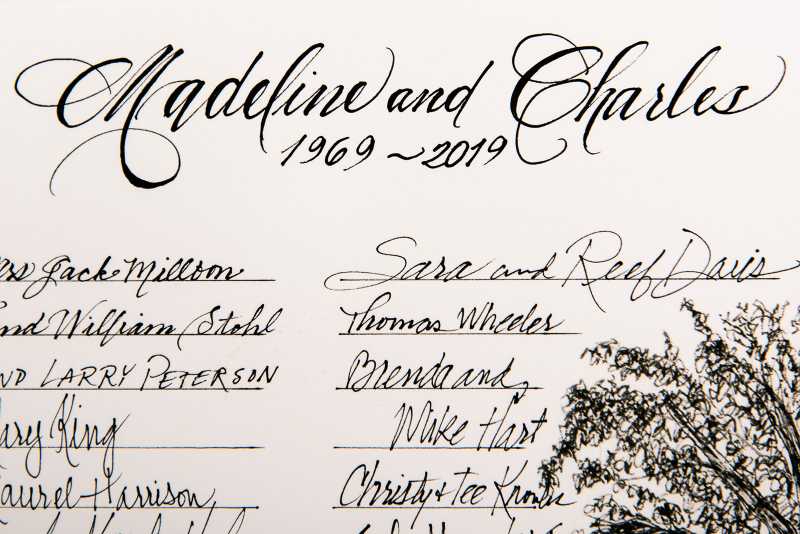 Madeline and Charles
1969 ~ 2019
Mrs Jack Milloon
and William Stohl
AND LARRY PETERSON
Mary King
Laurel Harrison
Sara and Reef Davis
Thomas Wheeler
Brenda and
Mike Hart
Christy & Tee